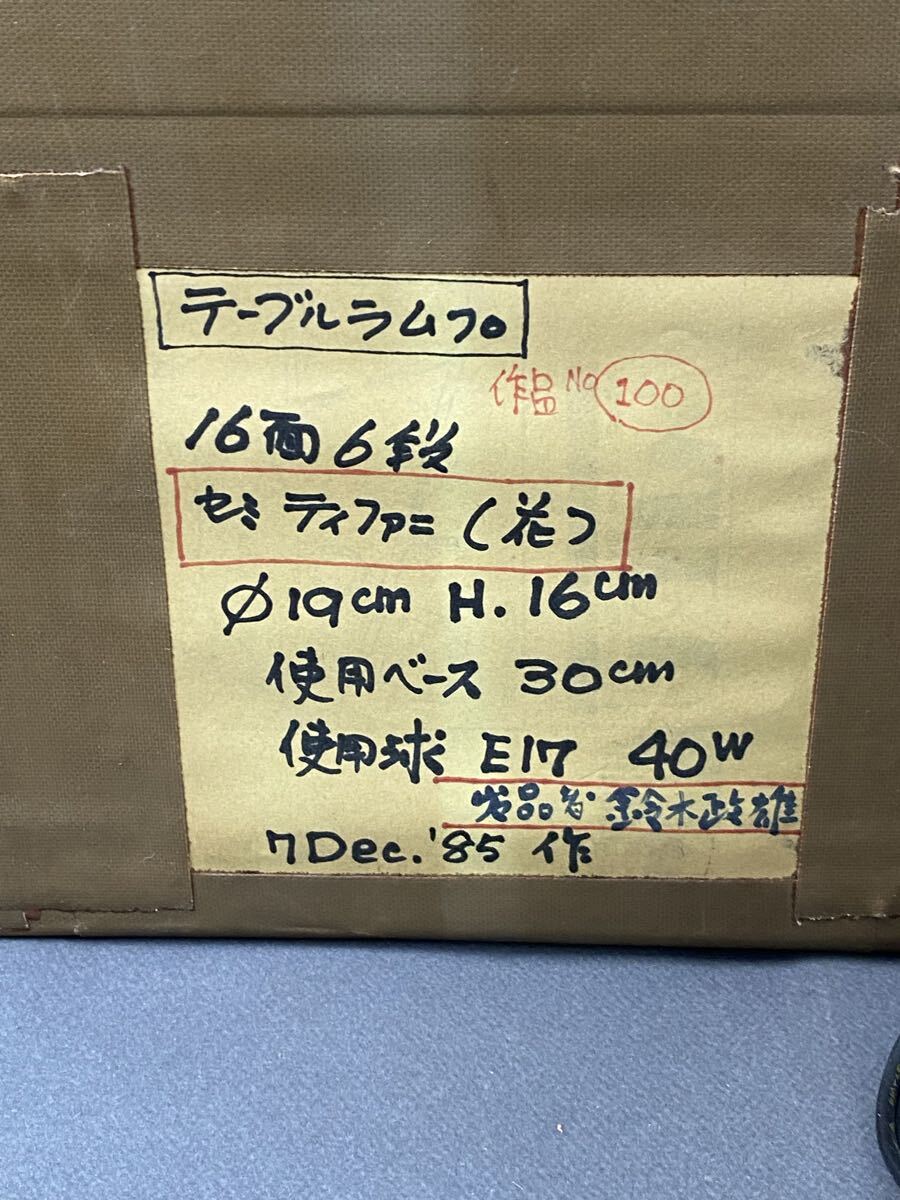 テーブルランプ
作品No 100
16面6段
セミティファニ(花)
φ19cm H.16cm
使用ベース 30cm
使用球 E17 40W
出品者 鈴木政雄
7Dec.'85 作